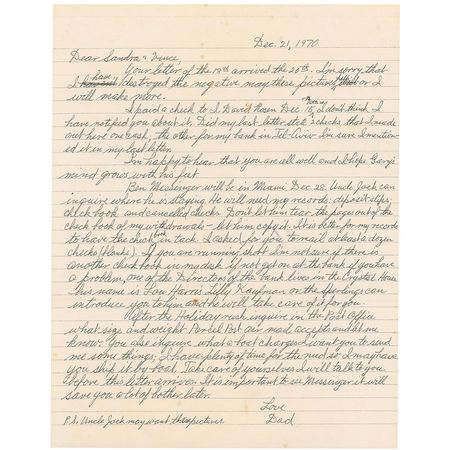 Dec. 21, 1970
Dear Sandra & Vince,
Your letter of the 18th arrived the 20th. I'm sorry that
I have destroyed the negative may these pictures or I
will make more.
I paid a check to I. David Rosen Dec. 15, I don't think I
have notified you about it. Did my last letter state 2 checks that I made
out here one Cash, the other for my bank in Tel-Aviv I'm sure I mention-
ed it in my last letter.
I'm happy to hear that you are all well and I hope Gary's
mind grows with his feet.
Ben Messinger will be in Miami Dec 28. Uncle Jack can
inquire where he is staying. He will need my records: deposit slips,
check book and cancelled checks. Don't let him tear the pages out of the
check book of my withdrawals - let him copy it. It is better for my records
to have the check book in tack. I asked for you to mail at least a dozen
checks (blanks). If you are running short I'm not sure if there is
another check book in my desk if not get one at the bank if you have
a problem, one of the Directors of the bank lives in the Crystal House
his name is Lou Harris Lilly Kaufman or the Sperlings can
introduce you to him and he will take care of it for you
After the Holiday rush inquire in the Post Office
what size and weight Parcel Post air mail accepts and let me
know. You also inquire what a boat charges I want you to send
me some things; I have plenty of time for the most so I may have
you ship it by boat. Take care of yourselves I will talk to you
before this letter arrives. It is important to see Messinger it will
save you a lot of bother later.
Love
Dad
P.S. Uncle Jack may want the pictures